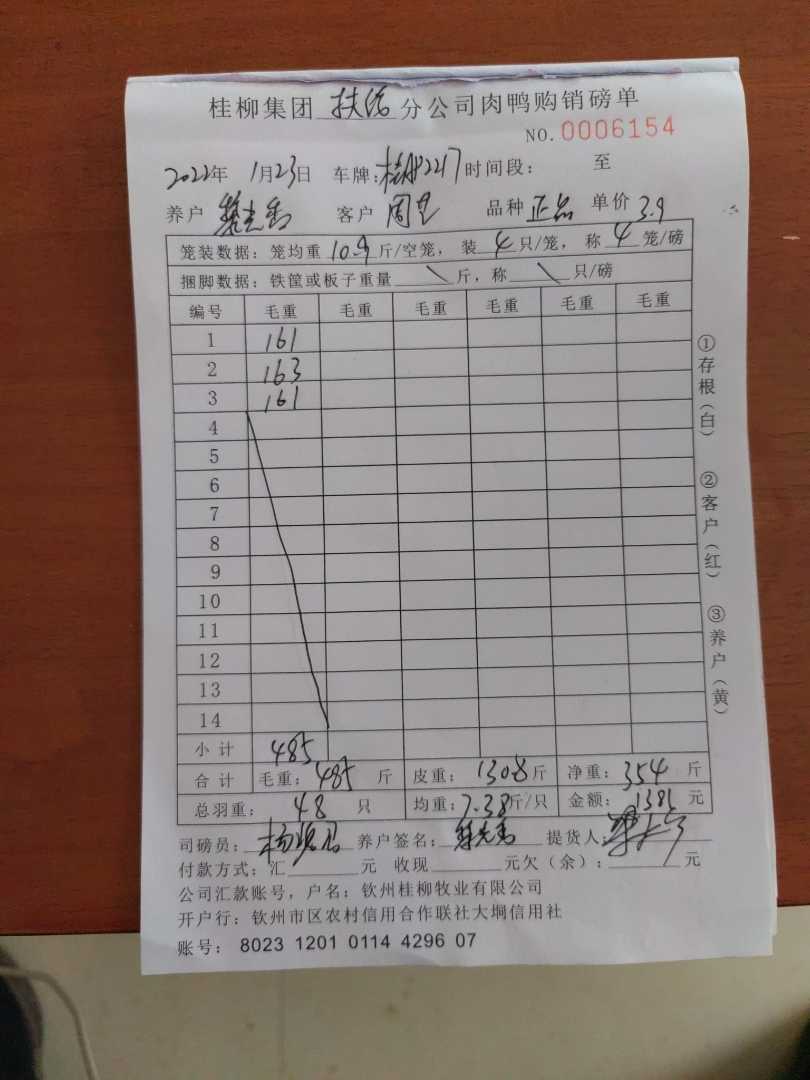 桂柳集团 扶绥 分公司肉鸭购销磅单
NO.0006154
2022年 1月23日 车牌: 2217 时间段: 至
养户 客户 周 品种 正品 单价 3.9
笼装数据: 笼均重 10.9 斤/空笼, 装 4 只/笼, 称 4 笼/磅
捆脚数据: 铁筐或板子重量 \ 斤, 称 \ 只/磅
编号 毛重 毛重 毛重 毛重 毛重 毛重
1 161
2 163
3 161
4
5
6
7
8
9
10
11
12
13
14
小计 485
合计 毛重: 485 斤 皮重: 130.8 斤 净重: 354 斤
总羽重: 48 只 均重: 7.38 斤/只 金额: 1381 元
司磅员: 杨 养户签名: 提货人:
付款方式: 汇 元 收现 元欠(余): 元
公司汇款账号, 户名: 钦州桂柳牧业有限公司
开户行: 钦州市区农村信用合作联社大垌信用社
账号: 8023 1201 0114 4296 07
①存根(白)
②客户(红)
③养户(黄)